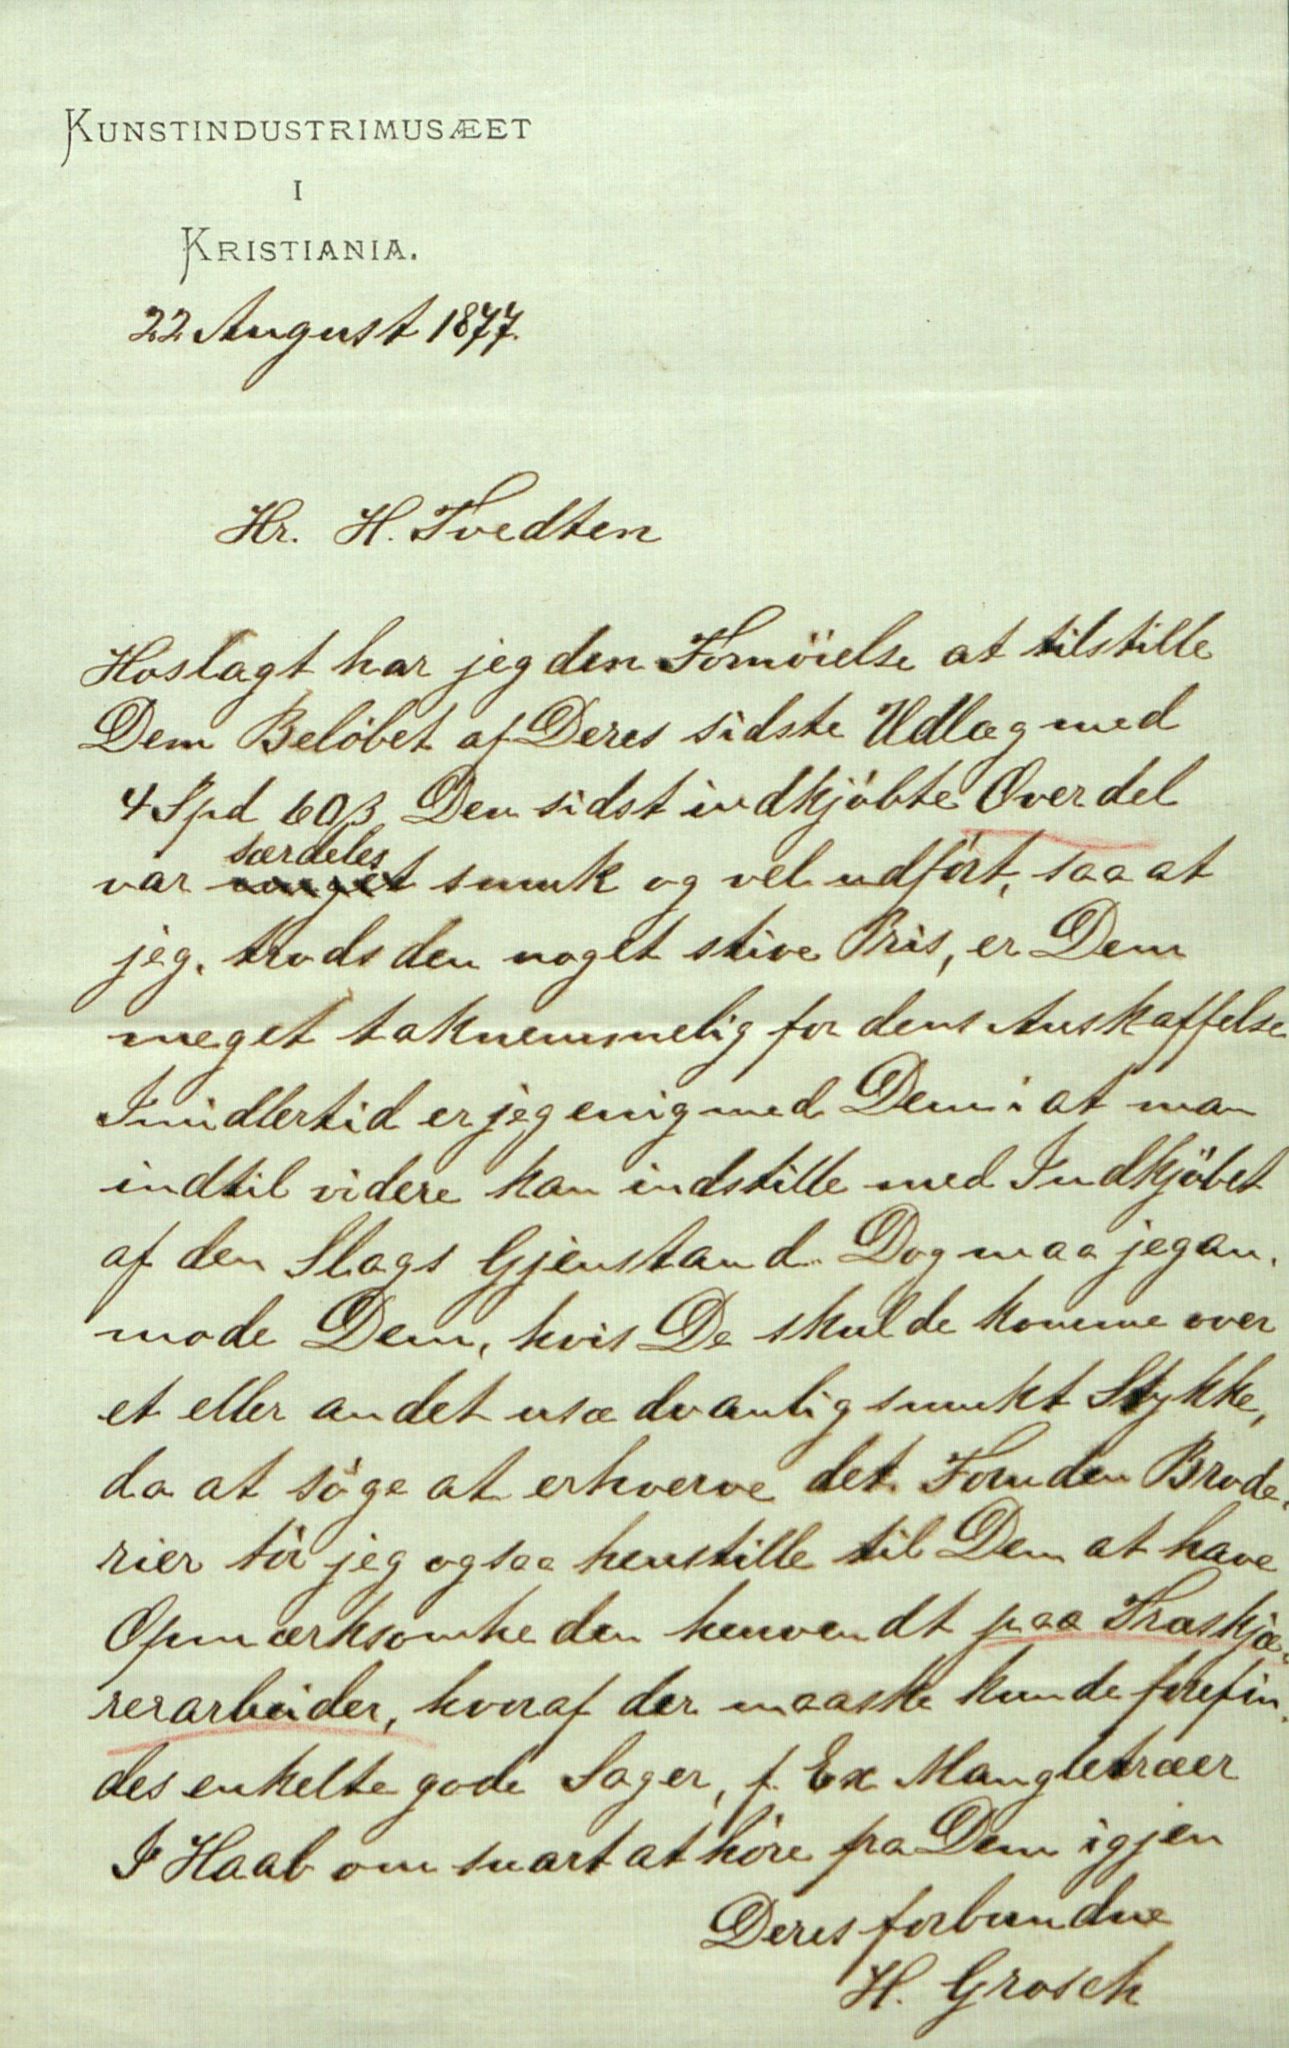 KUNSTINDUSTRIMUSÆET
I
KRISTIANIA.
22 August 1877.
Hr. H. Tvedten
Hoslagt har jeg den Fornöielse at tilstille
Dem Belöbet af Deres sidste Udlæg med
4 Spd 60 β. Den sidst indkjöbte Overdel
særdeles
var meget smuk og vel udfört, saa at
jeg, trods den noget stive Pris, er Dem
meget taknemmelig for dens Anskaffelse
Imidlertid er jeg enig med Dem i at man
indtil videre kan indstille med Indkjöbet
af den Slags Gjenstand. Dog maa jeg an-
mode Dem, hvis De skulde komme over
et eller andet usædvanlig smukt Stykke,
da at söge at erhverve det. Foruden Brode-
rier tör jeg ogsaa henstille til Dem at have
Opmærksomheden henvendt paa Træskjæ-
rerarbeider, hvoraf der maaske kunde forefin-
des enkelte gode Sager, f. Ex Mangletræer
I Haab om snart at höre fra Dem igjen
Deres forbundne
H. Grosch